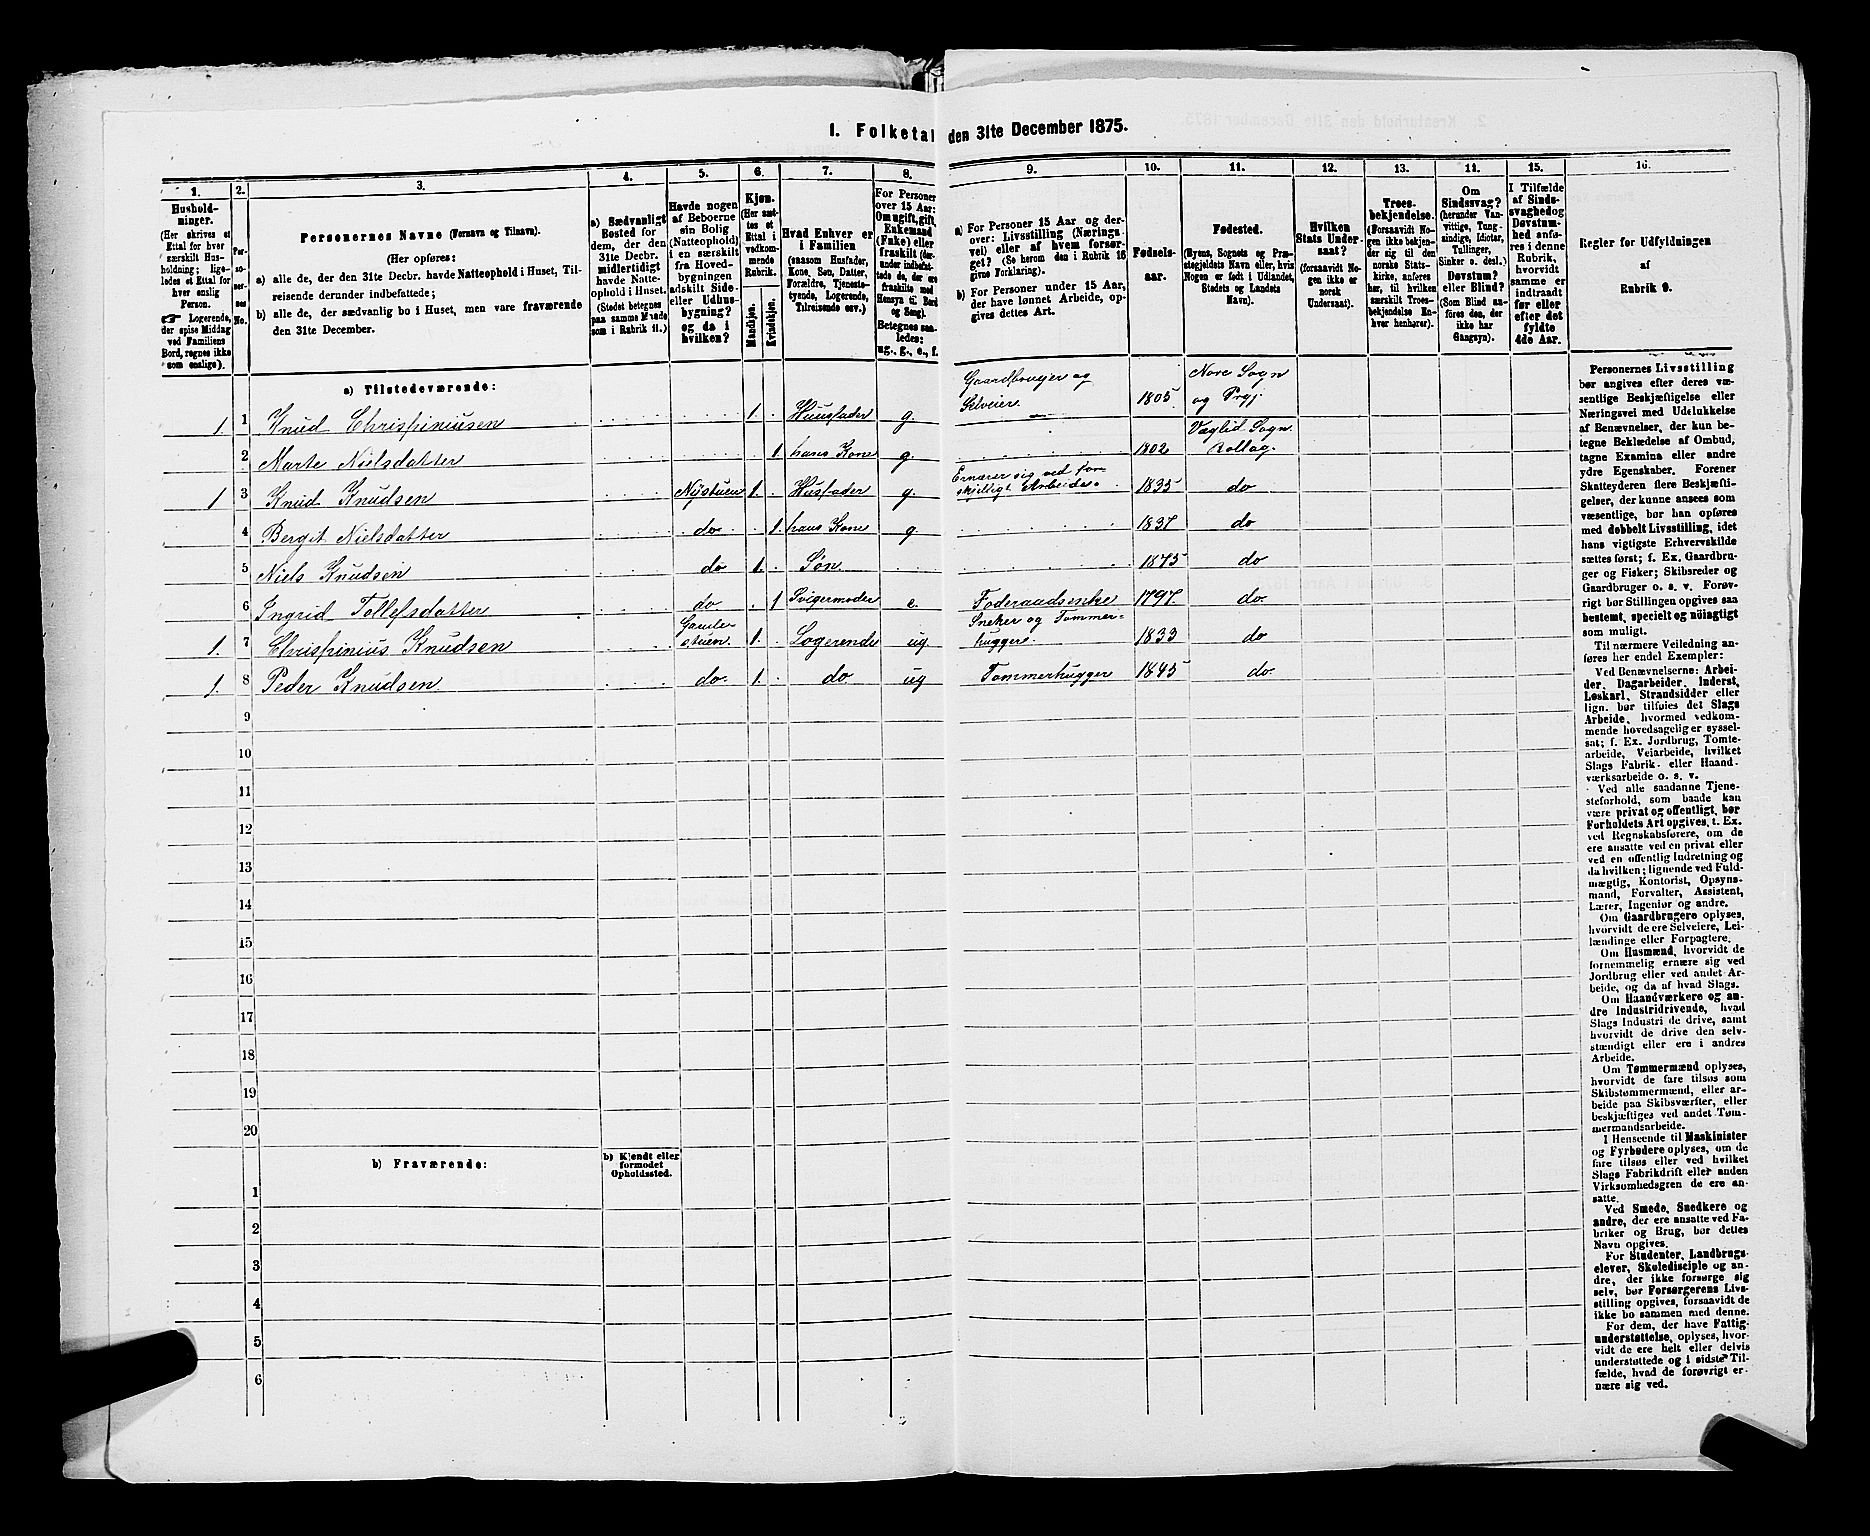 1. Folketal den 31te December 1875.
1. 2. 3. 4. 5. 6. 7. 8. 9. 10. 11. 12. 13. 14. 15. 16.
Hushold-
ninger.
(Her skrives et
Ettal for hver
særskilt Hus-
holdning; lige-
ledes et Ettal for
hver enslig
Person.
☞ Logerende,
der spise Middag
ved Familiens
Bord, regnes ikke
som enslige).
Per-
so-
ner-
nes
No.
Personernes Navne (Fornavn og Tilnavn).
(Her opføres:
a) alle de, der den 31te Decbr. havde Natteophold i Huset, Til-
reisende derunder indbefattede;
b) alle de, der sædvanlig bo i Huset, men vare fraværende
den 31te December.
a) Sædvanligt
Bosted for
dem, der den
31te Decbr.
midlertidigt
havde Natte-
ophold i Huset.
(Stedet betegnes
paa samme Maade
som i Rubrik 11.)
Havde nogen
af Beboerne
sin Bolig
(Natteophold)
i en særskilt
fra Hoved-
bygningen
adskilt Side-
eller Udhus-
bygning?
og da i
hvilken?
Kjøn.
(Her sæt-
tes et
Ettal i
vedkom-
mende
Rubrik.
Mandkjøn.
Kvindekjøn.
Hvad Enhver er
i Familien
(saasom Husfader,
Kone, Søn, Datter,
Forældre, Tjeneste-
tyende, Logerende,
Tilreisende osv.)
For Personer
over 15 Aar:
Om ugift, gift,
Enkemand
(Enke) eller
fraskilt (her-
under indbefat-
tede de, der ere
fraskilte med
Hensyn til Bord
og Seng).
Betegnes saa-
ledes:
ug., g., e., f.
a) For Personer 15 Aar og der-
over: Livsstilling (Nærings-
vei) eller af hvem forsør-
get? (Se herom den i Rubrik 16
givne Forklaring).
b) For Personer under 15 Aar,
der have lønnet Arbeide, op-
gives dettes Art.
Fødsels-
aar.
Fødested.
(Byens, Sognets og Præ-
stegjeldets Navn eller, hvis
Nogen er født i Udlandet,
Stedets og Landets
Navn).
Hvilken
Stats Under-
saat?
(forsaavidt No-
gen ikke er
norsk
Undersaat).
Troes-
bekjendelse.
(Forsaavidt No-
gen ikke bekjen-
der sig til den
norske Stats-
kirke, anføres
her, til hvilken
særskilt Troes-
bekjendelse En-
hver henhører).
Om
Sindssvag?
(herunder Van-
vittige, Tung-
sindige, Idioter,
Tullinger,
Sinker o. desl.).
Døvstum?
eller Blind?
(Som Blind an-
føres den, der
ikke har
Gangsyn).
I Tilfælde
af Sinds-
svaghed og
Døvstum-
hed anfø-
res i denne
Rubrik,
hvorvidt
samme er
indtraadt
før eller
efter det
fyldte
4de Aar.
Regler for Udfyldningen
af
Rubrik 9.
a) Tilstedeværende:
1. 1 Knud Chrispiniusen 1. Huusfader g. Gaardbruger og Selveier. 1805 Nore Sogn og Prgj.
2 Marte Nielsdatter 1 hans Kone g. 1802 Veglid Sogn Rollag.
1 3 Knud Knudsen Nystuen 1. Husfader g. Ernærer sig ved forskjelligt Arbeide. 1835 do
4 Bergit Nielsdatter do 1. hans Kone g. 1837 do
5 Niels Knudsen do 1. Søn 1875 do
6 Ingrid Tollefsdatter do 1 Svigermoder e. Føderaadsenke 1797. do.
1. 7 Chrispinius Knudsen Gamlestuen 1. Logerende ug. Sneker og Tømmerhugger. 1833 do
1. 8 Peder Knudsen do. 1. do. ug Tømmerhugger 1845 do.
9
10
11
12
13
14
15
16
17
18
19
20
b) Fraværende: b) Kjendt eller
formodet
Opholdssted.
1
2
3
4
5
6
Personernes Livsstilling
bør angives efter deres væ-
sentlige Beskjæftigelse eller
Næringsvei med Udelukkelse
af Benævnelser, der kun be-
tegne Beklædelse af Ombud,
tagne Examina eller andre
ydre Egenskaber. Forener
Skatteyderen flere Beskjæfti-
gelser, der kunne ansees som
væsentlige, bør han opføres
med dobbelt Livsstilling, idet
hans vigtigste Erhvervskilde
sættes først; f. Ex. Gaardbru-
ger og Fisker; Skibsreder og
Gaardbruger o. s. v. Forøv-
rigt bør Stillingen opgives saa
bestemt, specielt og nöiagtigt
som muligt.
Til nærmere Veiledning an-
føres her endel Exempler:
Ved Benævnelserne: Arbei-
der, Dagarbeider, Inderst,
Løskarl, Strandsidder eller
lign. bør tilføies det Slags
Arbeide, hvormed vedkom-
mende hovedsagelig er syssel-
sat; f. Ex. Jordbrug, Tomte-
arbeide, Veiarbeide, hvilket
Slags Fabrik- eller Haand-
værksarbeide o. s. v.
Ved alle saadanne Tjene-
steforhold, som baade kan
være privat og offentligt, bør
Forholdets Art opgives, t. Ex.
ved Regnskabsførere, om de
ere ansatte ved en privat eller
ved en offentlig Indretning og
da hvilken; lignende ved Fuld-
mægtig, Kontorist, Opsyns-
mand, Forvalter, Assistent,
Lærer, Ingeniør og andre.
Om Gaardbrugere oplyses,
hvorvidt de ere Selveiere, Lei-
lændinge eller Forpagtere.
Om Husmænd, hvorvidt de
fornemmelig ernære sig ved
Jordbrug eller ved andet Ar-
beide, og da af hvad Slags.
Om Haandværkere og an-
dre Industridrivende, hvad
Slags Industri de drive, samt
hvorvidt de drive den selv-
stændigt eller ere i andres
Arbeide.
Om Tømmermænd oplyses,
hvorvidt de fare tilsøs som
Skibstømmermænd, eller ar-
beide paa Skibsværfter, eller
beskjæftiges ved andet Tøm-
mermandsarbeide.
I Henseende til Maskinister
og Fyrbødere oplyses, om de
fare tilsøs eller ved hvilket
Slags Fabrikdrift eller anden
Virksomhedsgren de ere an-
satte.
Ved Smede, Snedkere og
andre, der ere ansatte ved Fa-
briker og Brug, bør dettes
Navn opgives.
For Studenter, Landbrugs-
elever, Skoledisciple og an-
dre, der ikke forsørge sig
selv, bør Forsørgerens Livs-
stilling opgives, forsaavidt de
ikke bo sammen med denne.
For dem, der have Fattig-
understøttelse, oplyses, hvor-
vidt de ere helt eller delvis
understøttede og i sidste Til-
fælde, hvad de forøvrigt er-
nære sig ved.